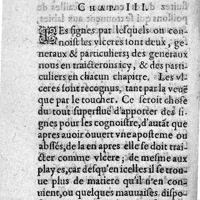 CHAP. III.
LEs signes par lesquels on con-
noist les vlceres sont deux, ge-
neraux & particuliers; des generaux
nous en traicterons icy, & des parti-
culiers en chacun chapitre. Les vl-
ceres sont recognus, tant par la veuë
que par le toucher. Ce seroit chose
du tout superfluë d'apporter des si-
gnes pour les cognoistre, d'autāt que
apres auoir ouuert vne aposteme ou
abssés, de là en apres elle se doit trai-
cter comme vlcere; de mesme aux
playes, car désqu'en icelles il se trou-
ue plus de matiere qu'il n'en con-
uient, ou quelques mauuaises dispo-